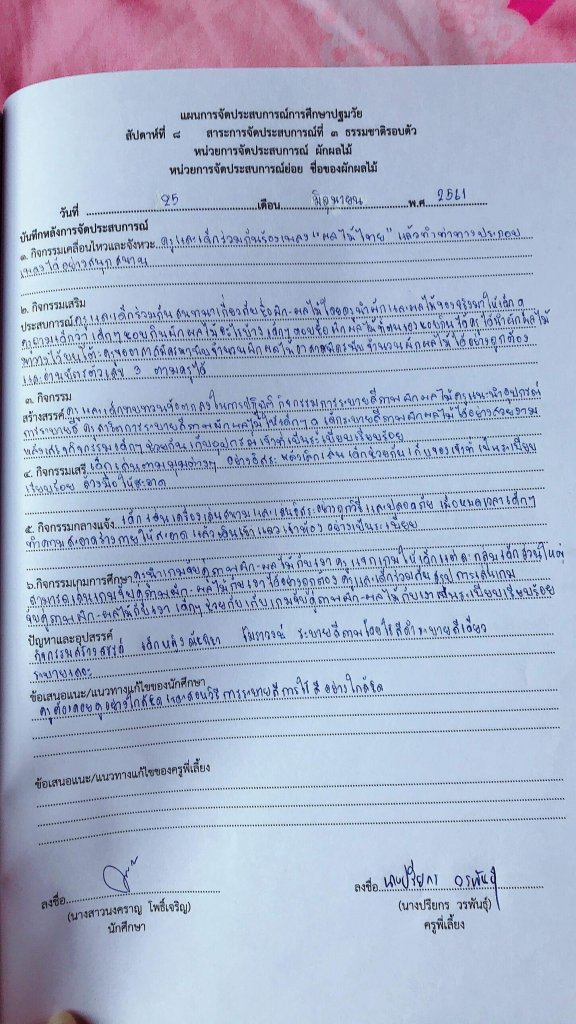 แผนการจัดประสบการณ์การศึกษาปฐมวัย
สัปดาห์ที่ ๘ สาระการจัดประสบการณ์ที่ ๓ ธรรมชาติรอบตัว
หน่วยการจัดประสบการณ์ ผักผลไม้
หน่วยการจัดประสบการณ์ย่อย ชื่อของผักผลไม้
วันที่ 25 เดือน มิถุนายน พ.ศ 2561
บันทึกหลังการจัดประสบการณ์
๑. กิจกรรมเคลื่อนไหวและจังหวะ ครูและเด็กร่วมกันร้องเพลง "ผลไม้ไทย" แล้วทำท่าทางประกอบ
เพลงได้อย่างสนุกสนาน
๒. กิจกรรมเสริม
ประสบการณ์ ครูและเด็กร่วมกันสนทนาเกี่ยวกับชื่อผัก-ผลไม้โดยครูนำผักและผลไม้ของจริงมาให้เด็กดู
ครูถามเด็กว่า เด็กๆ ชอบกินผักผลไม้อะไรบ้าง เด็กๆ ตอบชื่อผักผลไม้ที่ตนเองชอบกินได้
ครูขออาสาสมัครมานับจำนวนผักผลไม้ อาสาสมัครนับจำนวนผักผลไม้ได้อย่างถูกต้อง
และอ่านบัตรตัวเลข 3 ตามครูได้
๓. กิจกรรม
สร้างสรรค์ ครูและเด็กทบทวนข้อตกลงในการปฏิบัติกิจกรรมการระบายสีภาพผักผลไม้ ครูแนะนำอุปกรณ์
การระบายสี ครูสาธิตการระบายสีภาพผักผลไม้ให้เด็กๆ ดู เด็กระบายสีภาพผักผลไม้ได้อย่างสวยงาม
หลังเสร็จกิจกรรมเด็กๆ ช่วยกันเก็บอุปกรณ์เข้าที่เป็นระเบียบเรียบร้อย
๔. กิจกรรมเสรี เด็กเล่นตามมุมต่างๆ อย่างอิสระ หลังเลิกเล่น เด็กช่วยกันเก็บของเข้าที่เป็นระเบียบ
เรียบร้อย ล้างมือให้สะอาด
๕. กิจกรรมกลางแจ้ง เด็กเล่นเครื่องเล่นสนามและเล่นอิสระอย่างถูกวิธีและปลอดภัย เมื่อหมดเวลาเด็กๆ
ทำความสะอาดร่างกายให้สะอาด แล้วเดินเข้าแถวเข้าห้องอย่างเป็นระเบียบ
๖.กิจกรรมเกมการศึกษา แนะนำเกมจับคู่ภาพผัก-ผลไม้กับเงา ครูแจกเกมให้เด็กแต่ละกลุ่ม เด็กส่วนใหญ่
สามารถเล่นเกมจับคู่ภาพผัก-ผลไม้กับเงาได้อย่างถูกต้อง ครูและเด็กร่วมกันสรุปการเล่นเกม
จับคู่ภาพผัก-ผลไม้กับเงา เด็กๆ ช่วยกันเก็บเกมจับคู่ภาพผัก-ผลไม้กับเงาเป็นระเบียบเรียบร้อย
ปัญหาและอุปสรรค์
กิจกรรมสร้างสรรค์ เด็กหญิง ระบายสีภาพโดยใช้สีดำระบายสีเดียว
ระบายเลอะ
ข้อเสนอแนะ/แนวทางแก้ไขของนักศึกษา
ครูต้องคอยดูอย่างใกล้ชิด และสอนวิธีการระบายสีการใช้สีอย่างใกล้ชิด
ข้อเสนอแนะ/แนวทางแก้ไขของครูพี่เลี้ยง
ลงชื่อ
(นางสาวนงคราญ โพธิ์เจริญ)
นักศึกษา
ลงชื่อ นางปรียกร วรพันธุ์
(นางปรียกร วรพันธุ์)
ครูพี่เลี้ยง